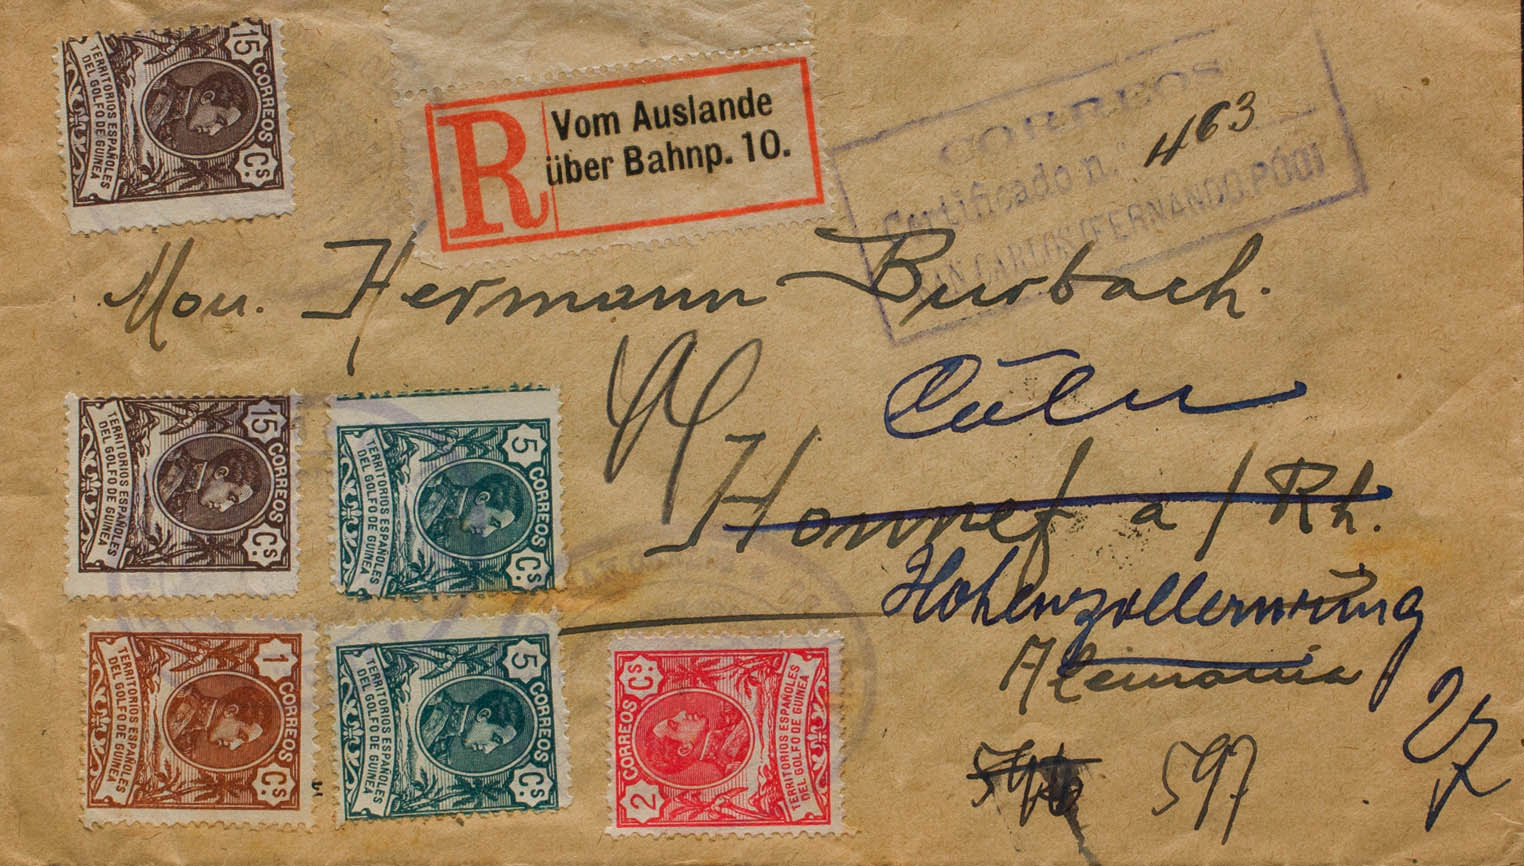 15
CORREOS
Cs
TERRITORIOS ESPAÑOLES
DEL GOLFO DE GUINEA
R
Vom Auslande
über Bahnp. 10.
CORREOS
Certificado n.° 463
SAN CARLOS (FERNANDO PÓO)
Mon. Hermann Burbach.
Cöln
Honnef a/Rh.
Hohenzollernring
Alemania
597
27
15
CORREOS
Cs
TERRITORIOS ESPAÑOLES
DEL GOLFO DE GUINEA
5
CORREOS
Cs
TERRITORIOS ESPAÑOLES
DEL GOLFO DE GUINEA
1
CORREOS
Cs
TERRITORIOS ESPAÑOLES
DEL GOLFO DE GUINEA
5
CORREOS
Cs
TERRITORIOS ESPAÑOLES
DEL GOLFO DE GUINEA
2
CORREOS
Cs.
TERRITORIOS ESPAÑOLES
DEL GOLFO DE GUINEA